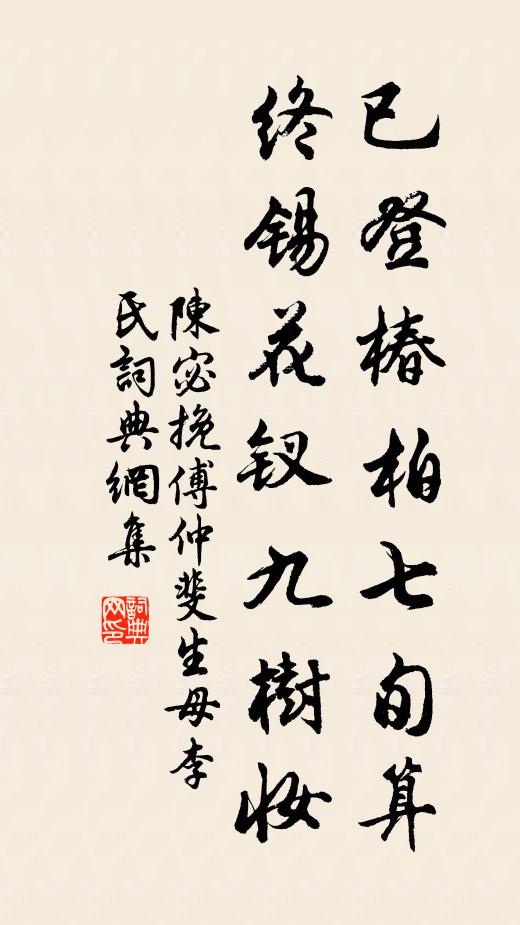 已登椿柏七旬算
终锡花钗九樹妆
陳宓挽傅仲斐生母李
氏詞典網集
詞典
网印